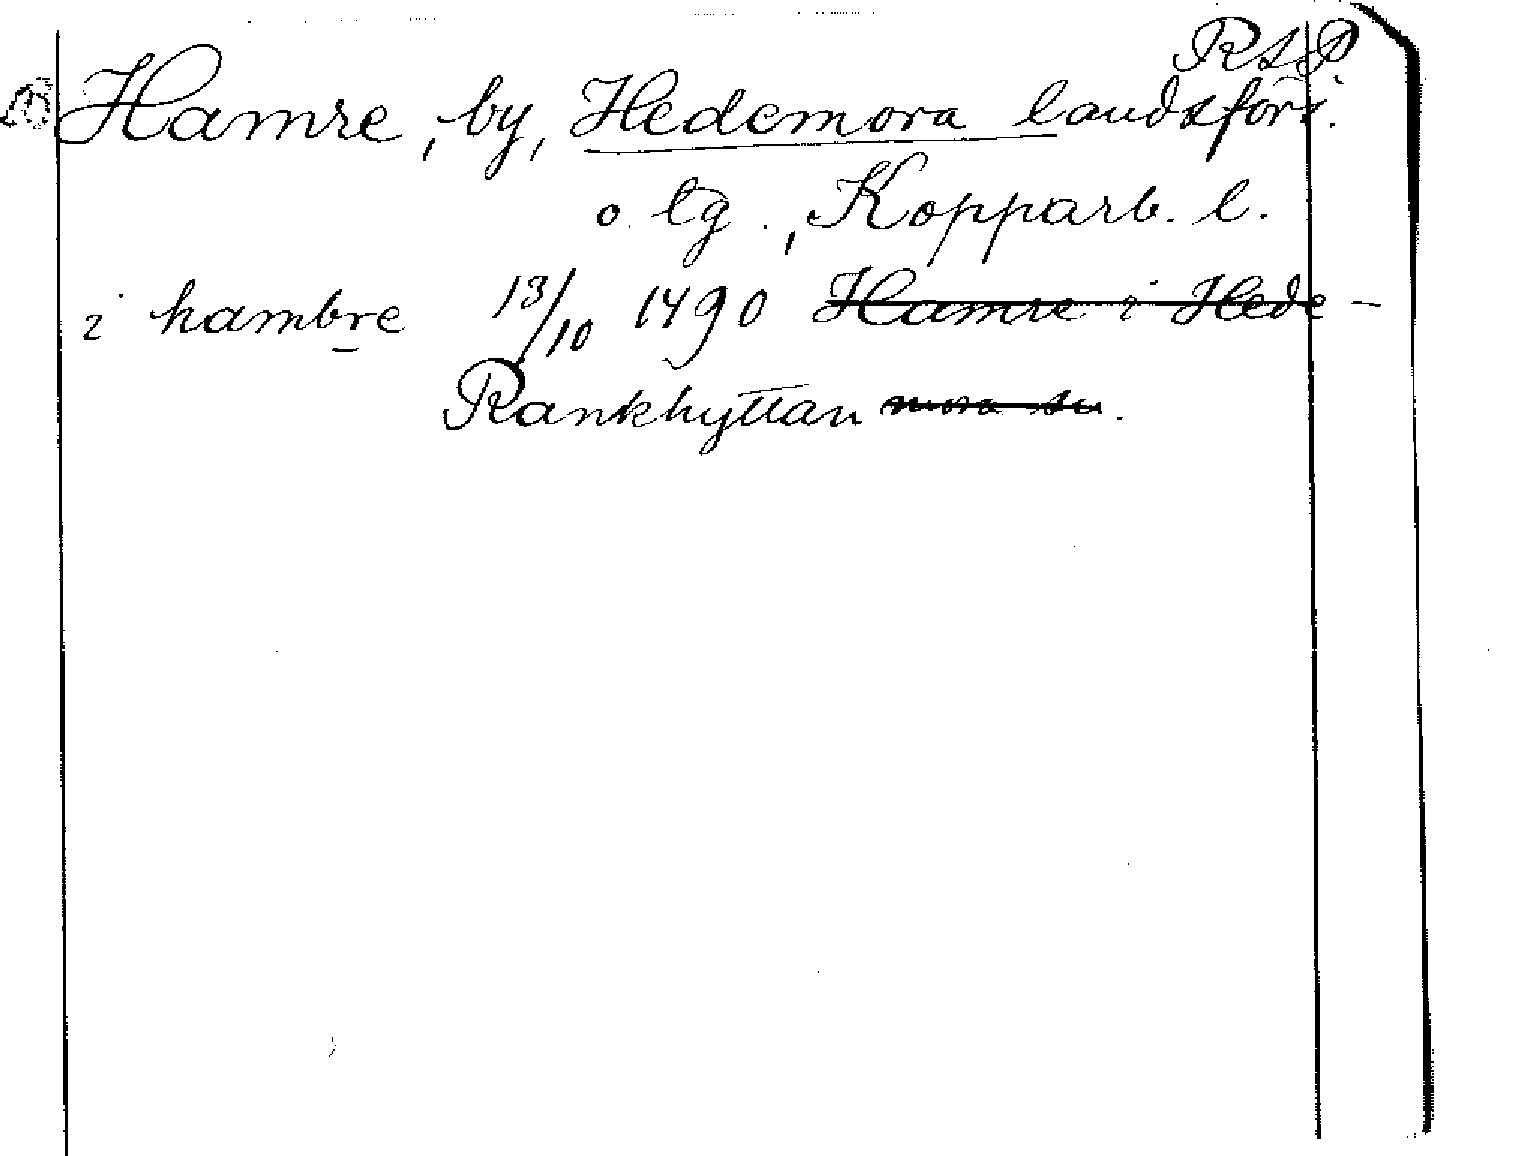 RAP
Hamre, by, Hedemora landsförs.
o. tg., Kopparb. l.
i hambre 13/10 1490 Hamre i Hede-
Rankhyttan mora sn.